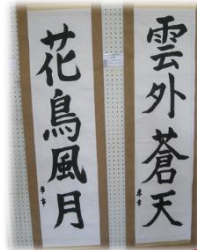 雲外蒼天
花鳥風月